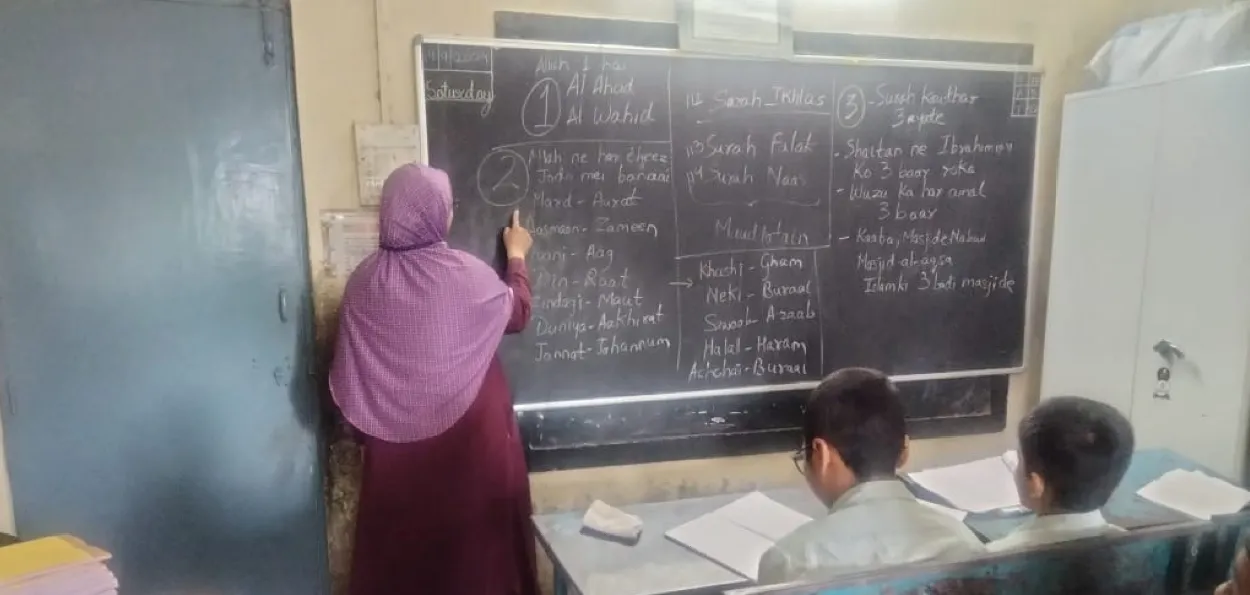 Saturday
Allah 1 hai
1 Al Ahad
Al Wahid
2 Allah ne har cheez
Joda mei banaai
Mard - Aurat
Aasmaan - Zameen
Paani - Aag
Din - Raat
Zindagi - Maut
Duniya - Aakhirat
Jannat - Jahannum
112 Surah Ikhlas
113 Surah Falak
114 Surah Naas
→ Khushi - Gham
Neki - Buraai
Sawab - Azaab
Halal - Haram
Achchai - Buraai
3 - Surah Kauthar
3 ayate
- Shaitan ne Ibrahim
Ko 3 baar roka
- Wuzu Ka har amal
3 baar
- Kaaba, Masjide Nabawi
Masjid-al-aqsa
Islam ki 3 badi masjide